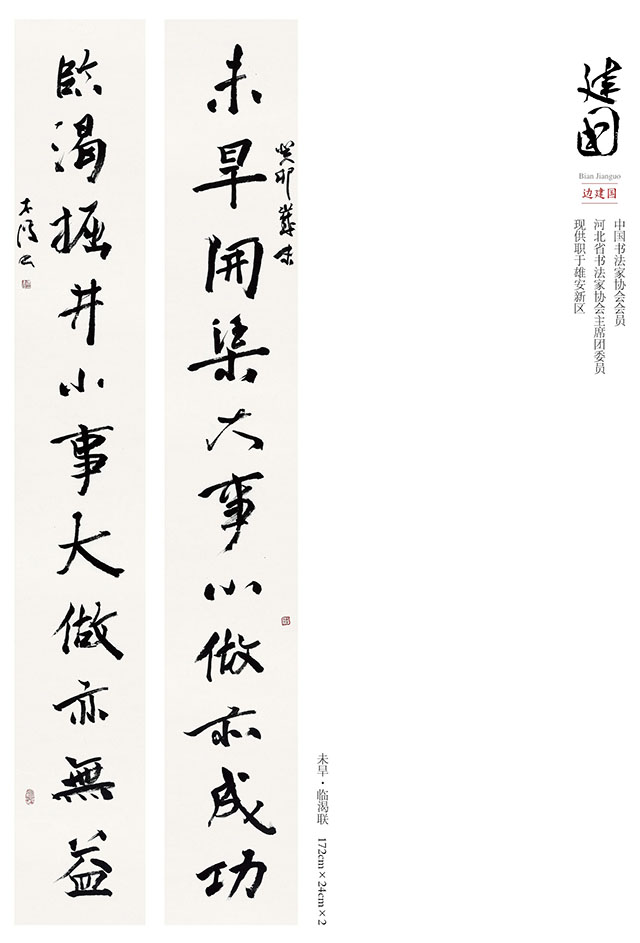 建国
Bian Jianguo
边建国
中国书法家协会会员
河北省书法家协会主席团委员
现供职于雄安新区
未旱·临渴联 172cm×24cm×2
未旱開渠大事小做亦成功
癸卯歲末
臨渴掘井小事大做亦無益